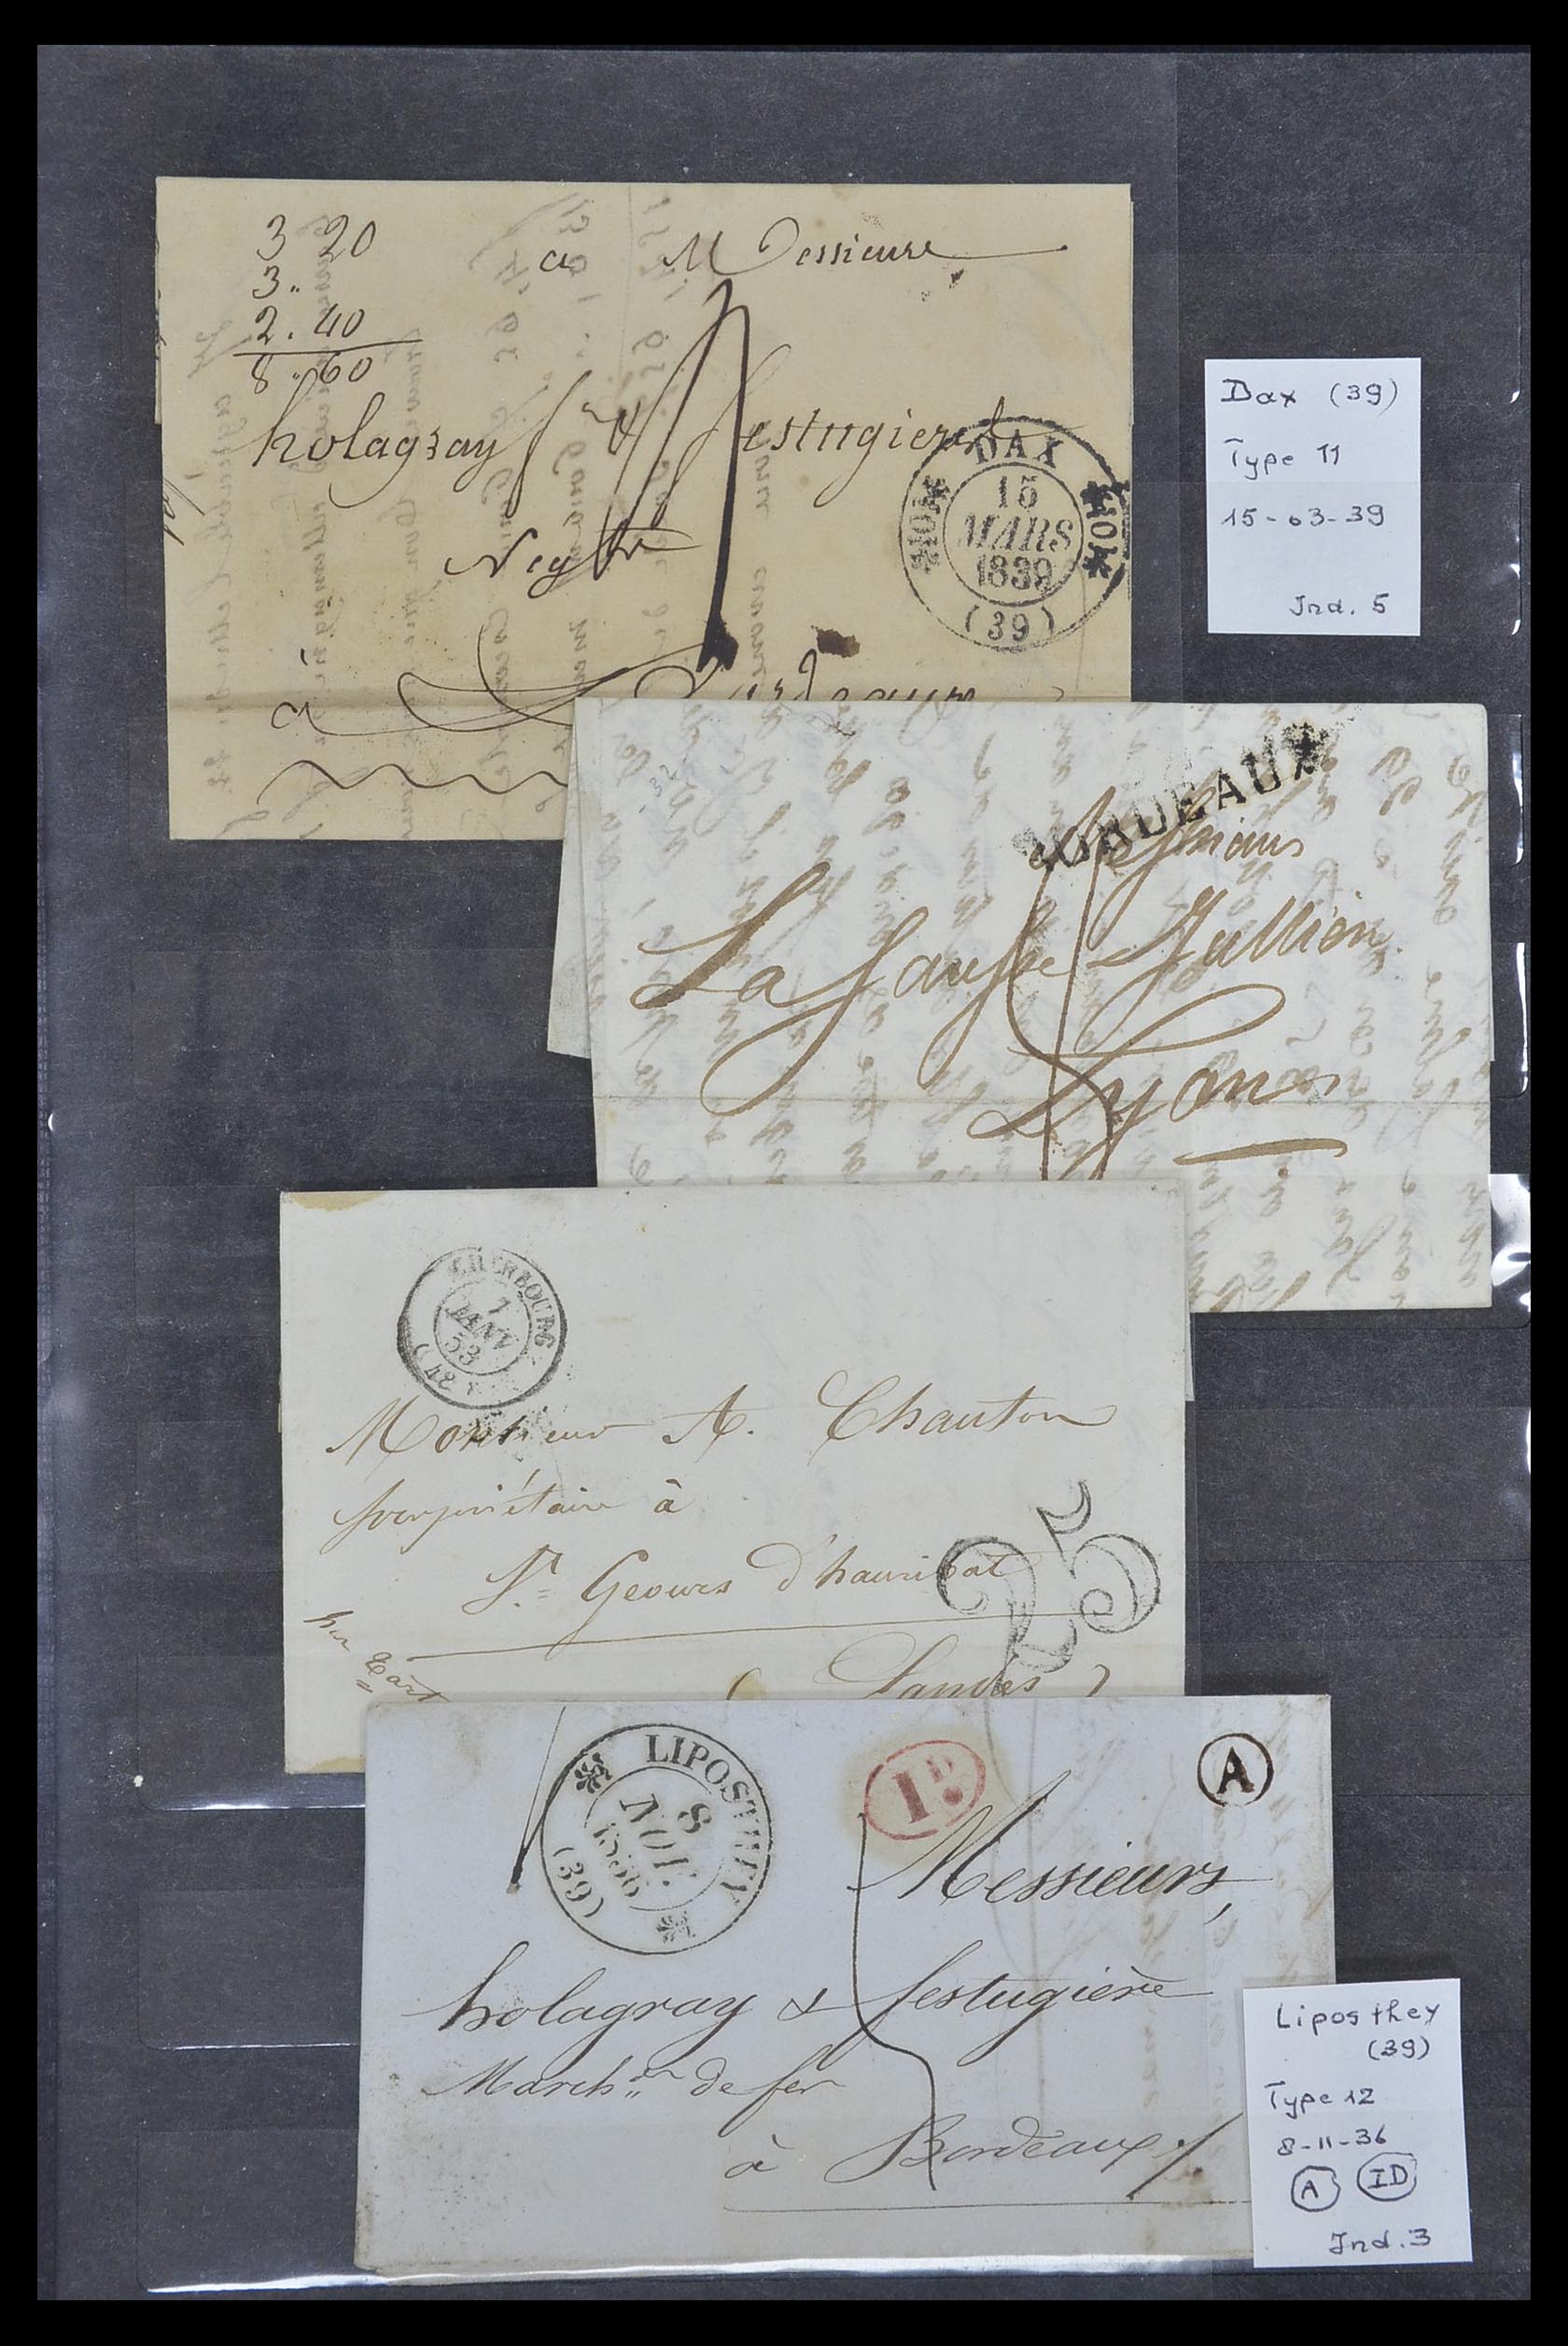 3 20
3 "
2 . 40
8 " 60
a Messieurs
holagray & festugiere
Neg.ts
DAX
15
MARS
1839
(39)
a Bordeaux
Dax (39)
Type 11
15-03-39
Ind. 5
BORDEAUX
Messieurs
La Jullien
Lyon
CHERBOURG
7
JANV
53
Monsieur A. Chauton
propriétaire à
St Geours d'hauribat
25
( Landes )
LIPOSTHEY
8
NOV.
1836
(39)
1D
A
Messieurs,
holagray & festugière
March.ds de fer
à Bordeaux
Liposthey
(39)
Type 12
8-11-36
A ID
Ind. 3